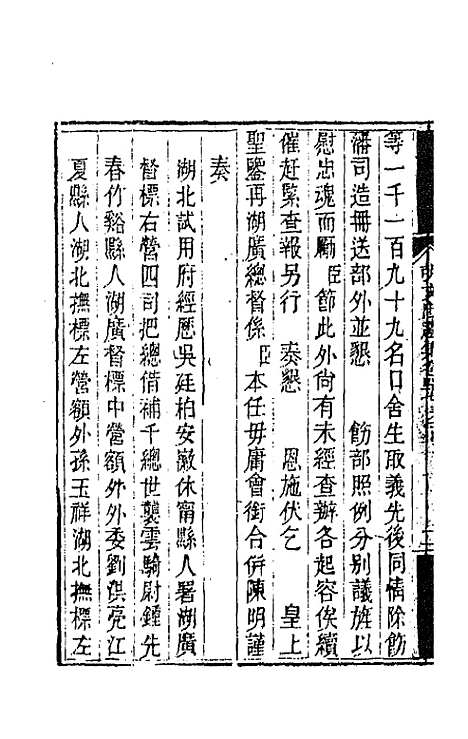 等一千一百九十九名口舍生取義先後同情除飭
藩司造冊送部外並懇　飭部照例分別議旌以
慰忠魂而勵臣節此外尚有未經查辦各起容俟續
催赶緊查報另行　奏懇　恩施伏乞　皇上
聖鑒再湖廣總督係臣本任毋庸會銜合併陳明謹
奏
湖北試用府經歷吳廷柏安徽休甯縣人署湖廣
督標右營四司把總借補千總世襲雲騎尉鍾先
春竹谿縣人湖廣督標中營額外外委劉淇亮江
夏縣人湖北撫標左營額外孫玉祥湖北撫標左